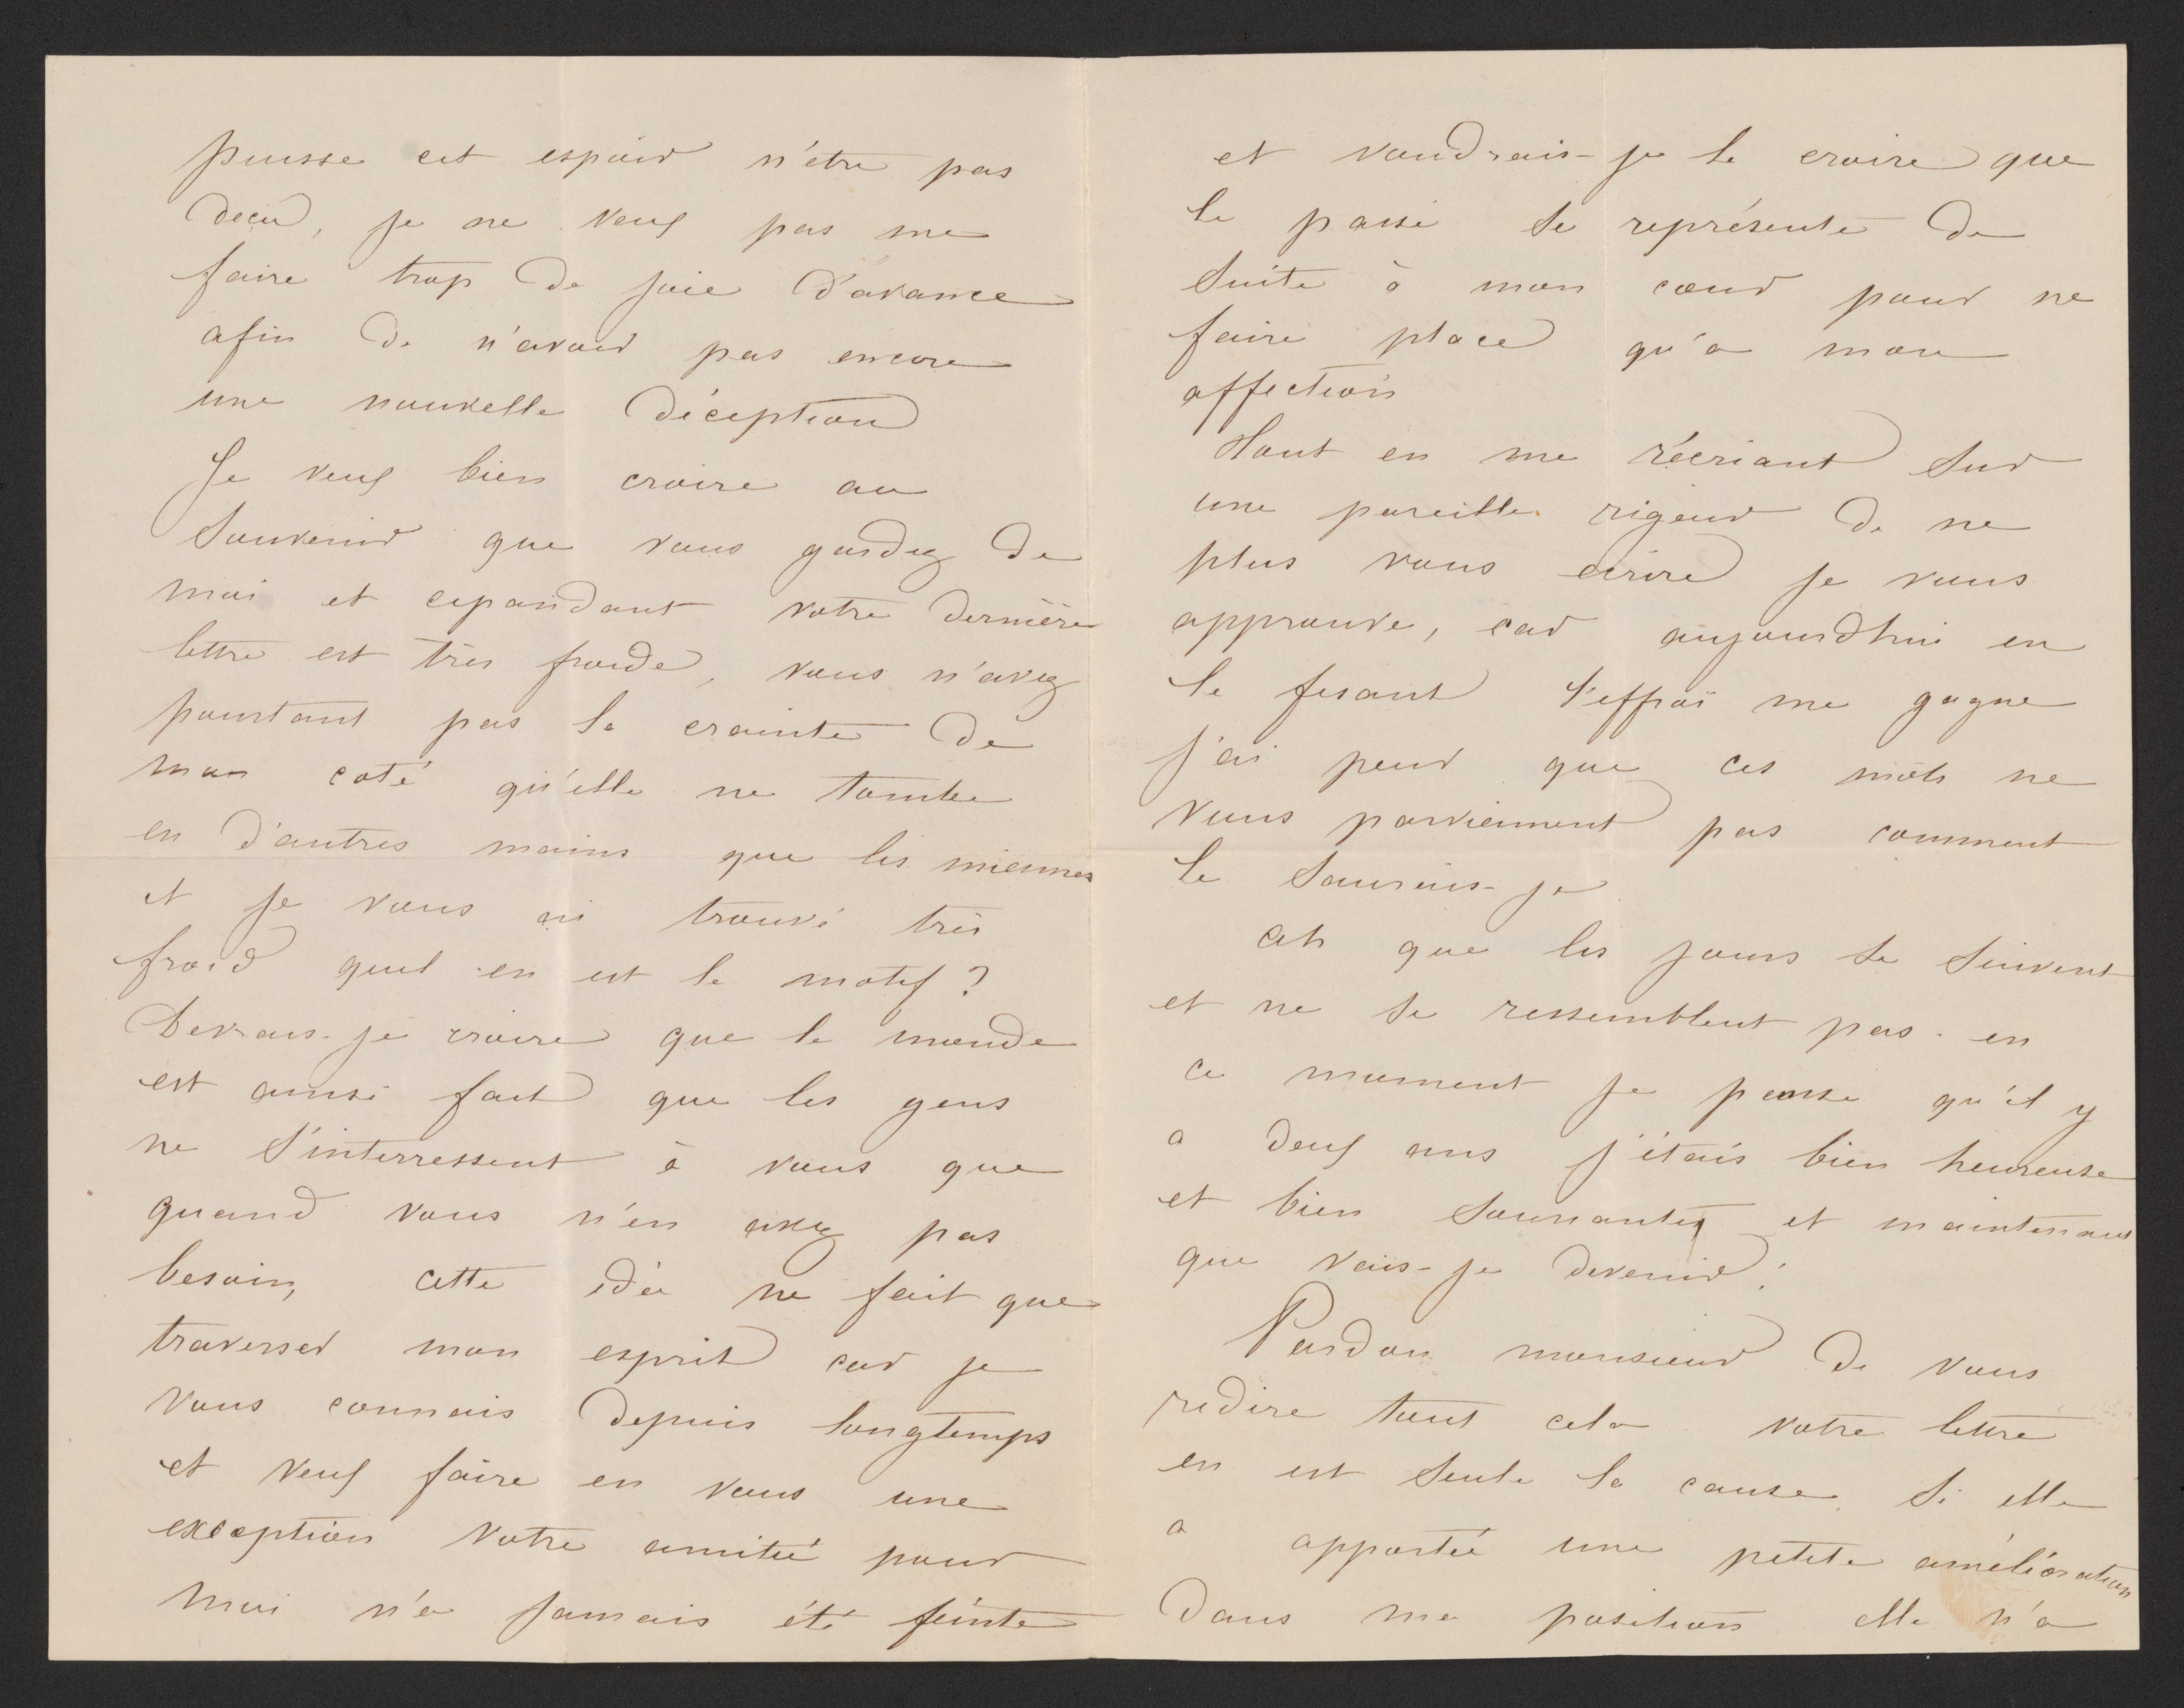 puisse cet espoir n'être pas
deçu, je ne veux pas me
faire trop de joie d'avance
afin de n'avoir pas encore
une nouvelle déception
Je veux bien croire au
souvenir que vous gardez de
moi et cepandant votre dernière
lettre est très froide, vous n'avez
pourtant pas la crainte de
mon coté qu'elle ne tombe
en d'autres mains que les miennes
et je vous ai trouvé très
froid quel en est le motif?
Devrais-je croire que le monde
est ainsi fait que les gens
ne s'interressent à vous que
quand vous n'en avez pas
besoin, cette idée ne fait que
traverser mon esprit car je
vous connais depuis longtemps
et veux faire en vous une
exception votre amitié pour
moi n'a jamais été feinte
et voudrais-je le croire que
le passé se représente de
suite à mon cœur pour ne
faire place qu'a mon
affection
Tout en me récriant sur
une pareille rigeur de ne
plus vous ecrire je vous
approuve, car aujourdhui en
le fesant l'effroi me gagne
j'ai peur que ces mots ne
vous parviennent pas comment
le saurais-je
ah que les jours se suivent
et ne se ressemblent pas. en
ce moment je pense qu'il y
a deux ans j'étais bien heureuse
et bien souriante, et maintenant
que vais-je devenir!
Pardon monsieur de vous
redire tout cela votre lettre
en est seule la cause. si elle
a apportée une petite amélioration
dans ma position elle n'a